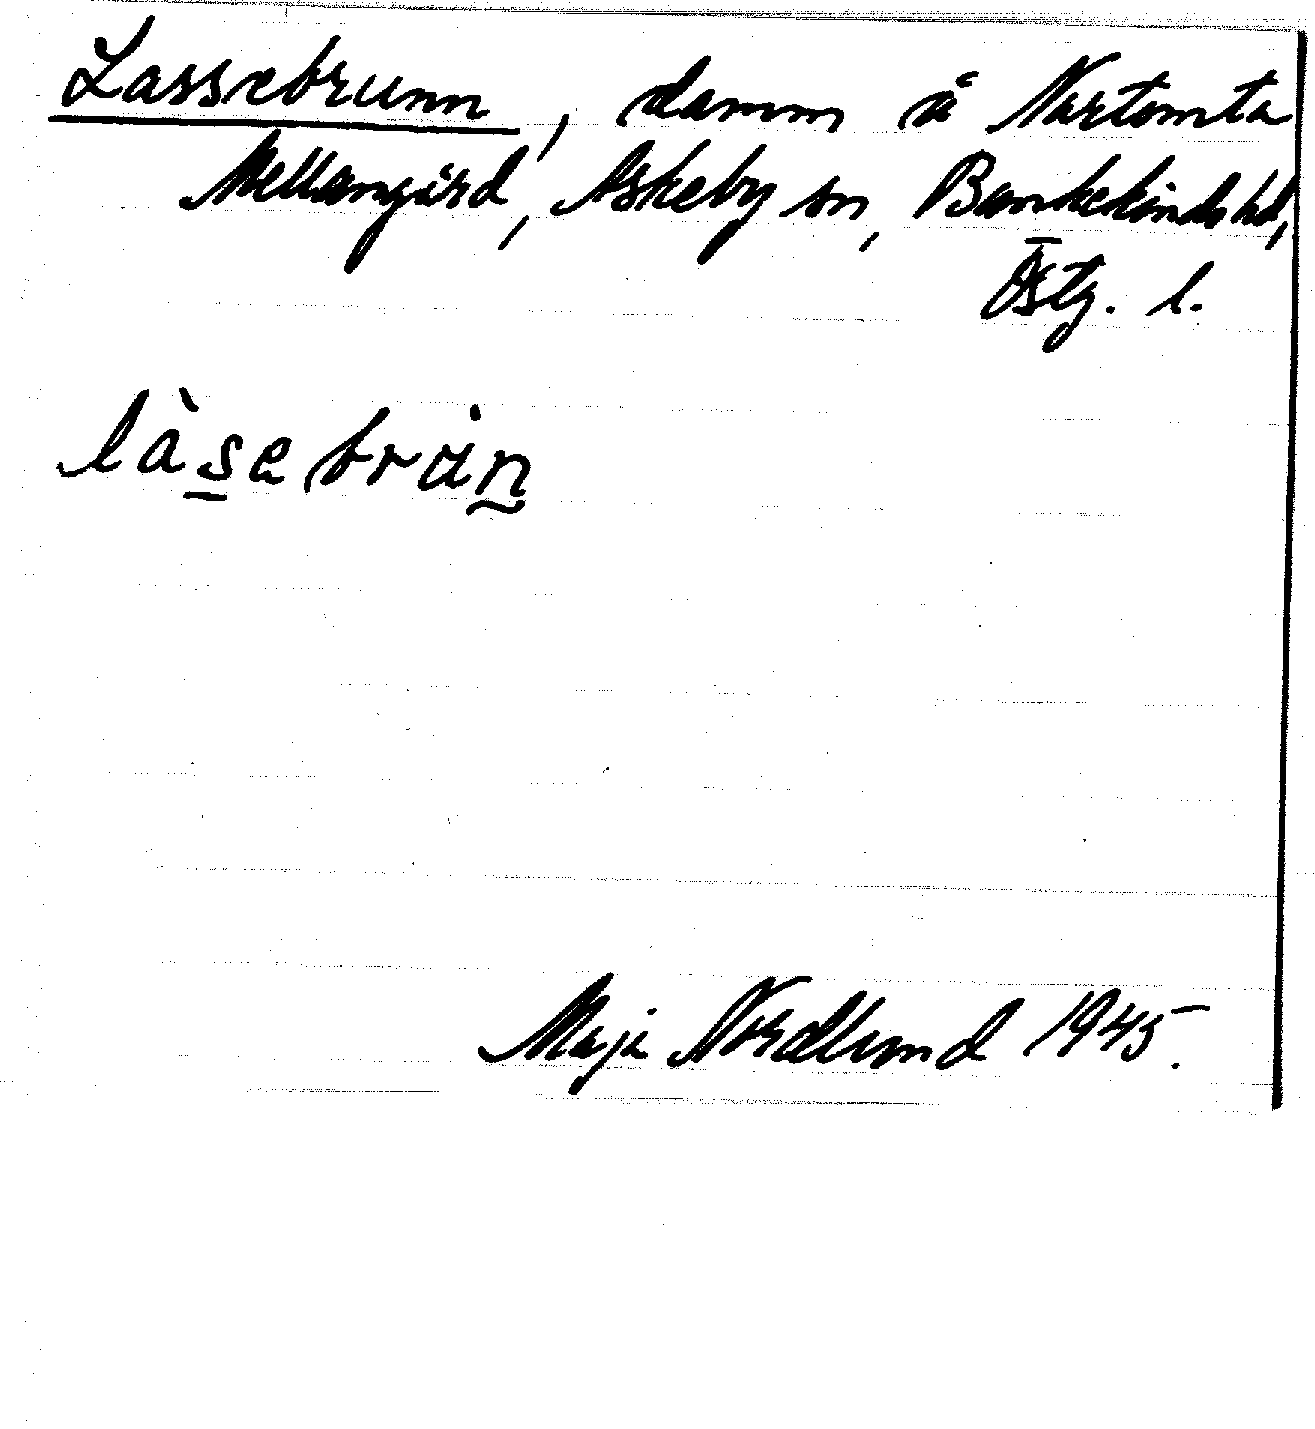 Lassebrunn, damm å Nartomta
Mellangård, Askeby sn, Bankekinds hd,
Östg. l.
làs̲ebrȧn̰
Maja Nordlund 1945.